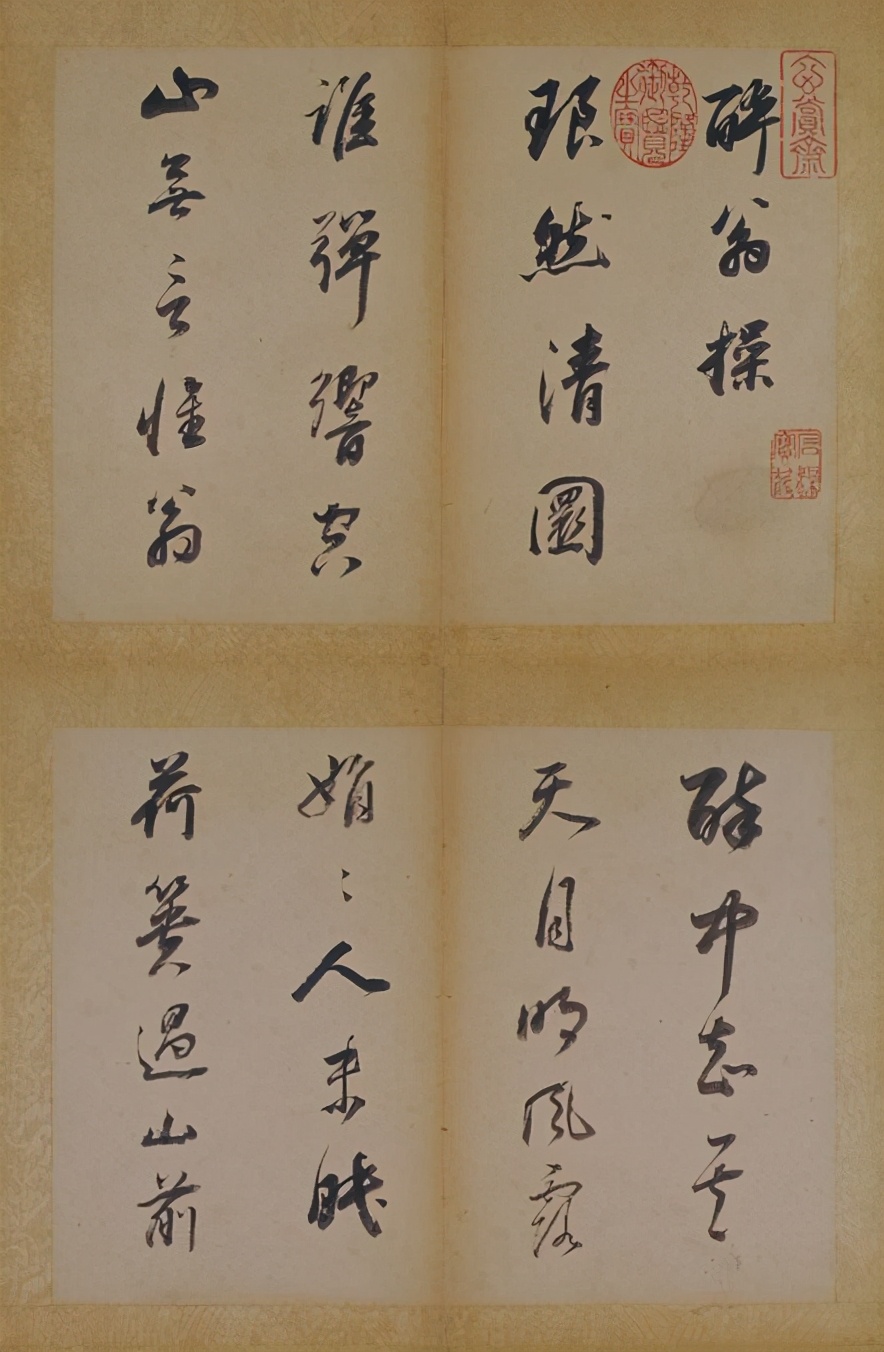 醉翁操
琅然清圜
誰彈響空
山無言惟翁
醉中知其
天月明風露
娟〻人未眠
荷蕢過山前
乾隆御覽之寶